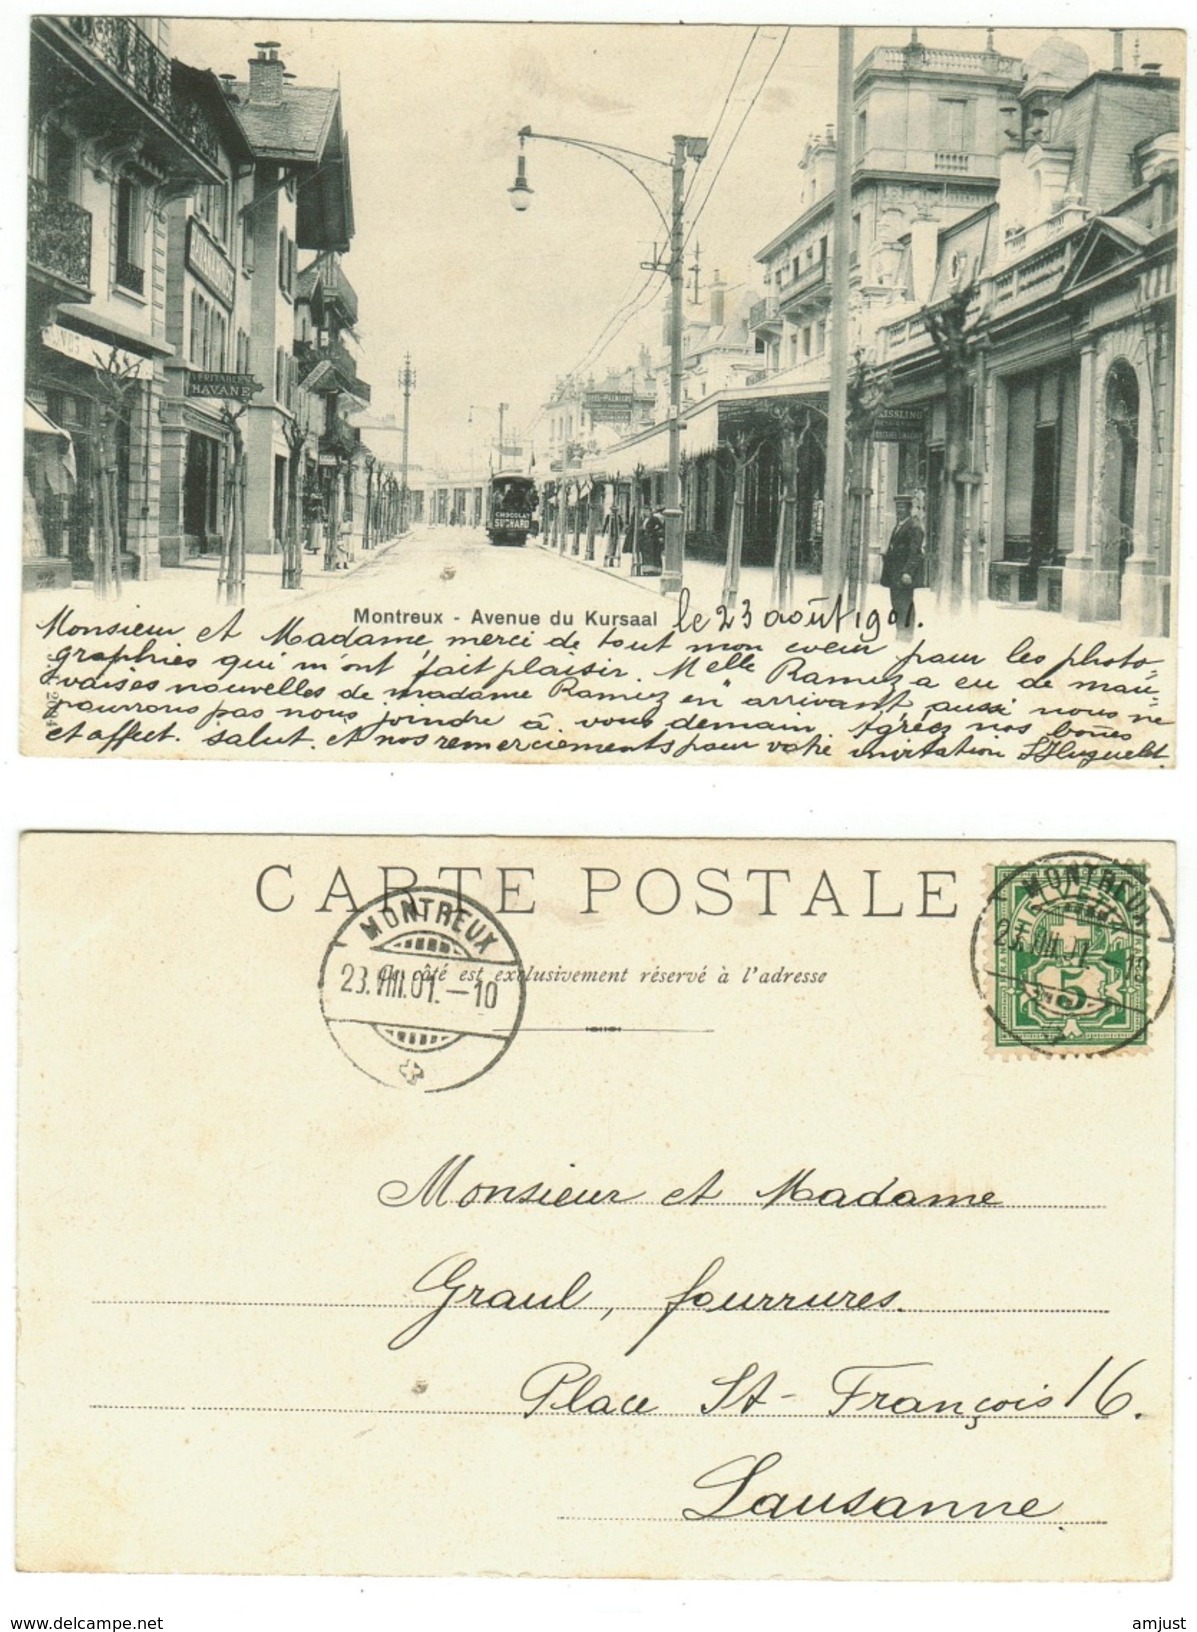 VERITABLES
HAVANE
CHOCOLAT
SUCHARD
KISSLING
Montreux - Avenue du Kursaal
le 23 août 1901.
Monsieur et Madame, merci de tout mon coeur pour les photo-
graphies qui m'ont fait plaisir. Melle Ramuz a eu de mau-
vaises nouvelles de madame Ramuz en arrivant, aussi nous ne
pourrons pas nous joindre à vous demain. Agréez nos bones
et affect. salut. et nos remerciements pour votre invitation LHuguelet.
CARTE POSTALE
Ce côté est exclusivement réservé à l'adresse
MONTREUX
23.VIII.01.-10
MONTREUX
23.VIII.01.-10
5
Monsieur et Madame
Graul, fourrures.
Place St-François 16.
Lausanne.
www.delcampe.net
amjust